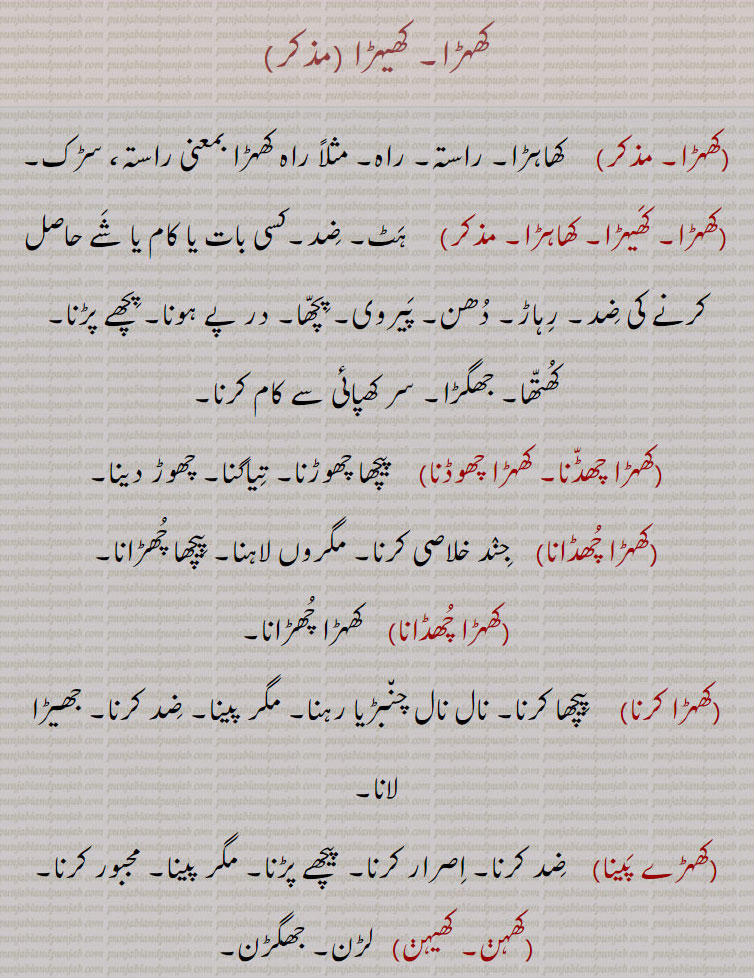 کھہڑا۔ کھیہڑا (مذکر)
(کھہڑا۔ مذکر) کھاہڑا۔ راستہ۔ راہ۔ مثلاً راہ کھہڑا بمعنی راستہ، سڑک۔
(کھہڑا۔ کھَیہڑا۔ کھاہڑا۔ مذکر) ہَٹ۔ ضِد۔ کسی بات یا کام یا شَے حاصل
کرنے کی ضِد۔ رِہاڑ۔ دُھن۔ پَیروی۔ پِچھّا۔ در پے ہونا۔ پِچھے پڑنا۔
کھُتھّا۔ جھگڑا۔ سر کھپائی سے کام کرنا۔
(کھہڑا چھڈّنا۔ کھہڑا چھوڈنا) پِیچھا چھوڑنا۔ تِیاگنا۔ چھوڑ دینا۔
(کھہڑا چُھڈانا) جِند خلاصی کرنا۔ مگروں لاہنا۔ پِیچھا چُھڑانا۔
(کھہڑا چُھڈانا) کھہڑا چُھڑانا۔
(کھہڑا کرنا) پِیچھا کرنا۔ نال نال چنّبڑیا رہنا۔ مگر پینا۔ ضِد کرنا۔ جھیڑا
لانا۔
(کھہڑے پَینا) ضِد کرنا۔ اِصرار کرنا۔ پیچھے پڑنا۔ مگر پینا۔ مجبور کرنا۔
(کھہن۔ کھیہن) لڑن۔ جھگڑن۔